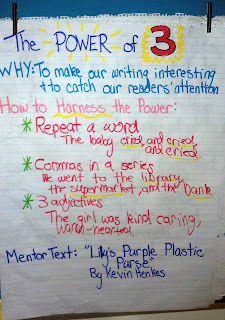 The POWER of 3
WHY: To make our writing interesting
+ to catch our readers' attention
How to Harness the Power:
* Repeat a word
The baby cried, and cried,
and cried.
* Commas in a series
We went to the library,
the supermarket, and the bank
* 3 adjectives
The girl was kind, caring,
warm-hearted.
Mentor Text: "Lilly's Purple Plastic
Purse"
By Kevin Henkes